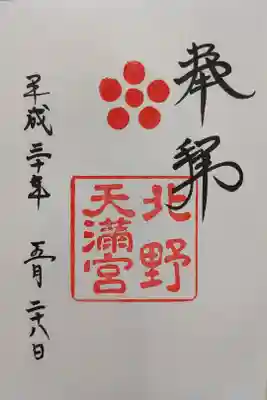 奉拝
北野
天満宮
平成三十年 五月 二十八日